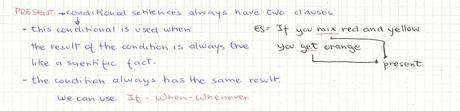 PRESENT → conditional sentences always have two clauses
- this conditional is used when
the result of the condition is always true
like a scientific fact.
- the condition always has the same result.
We can use If - When - Whenever
ES: If you mix red and yellow
you get orange
present